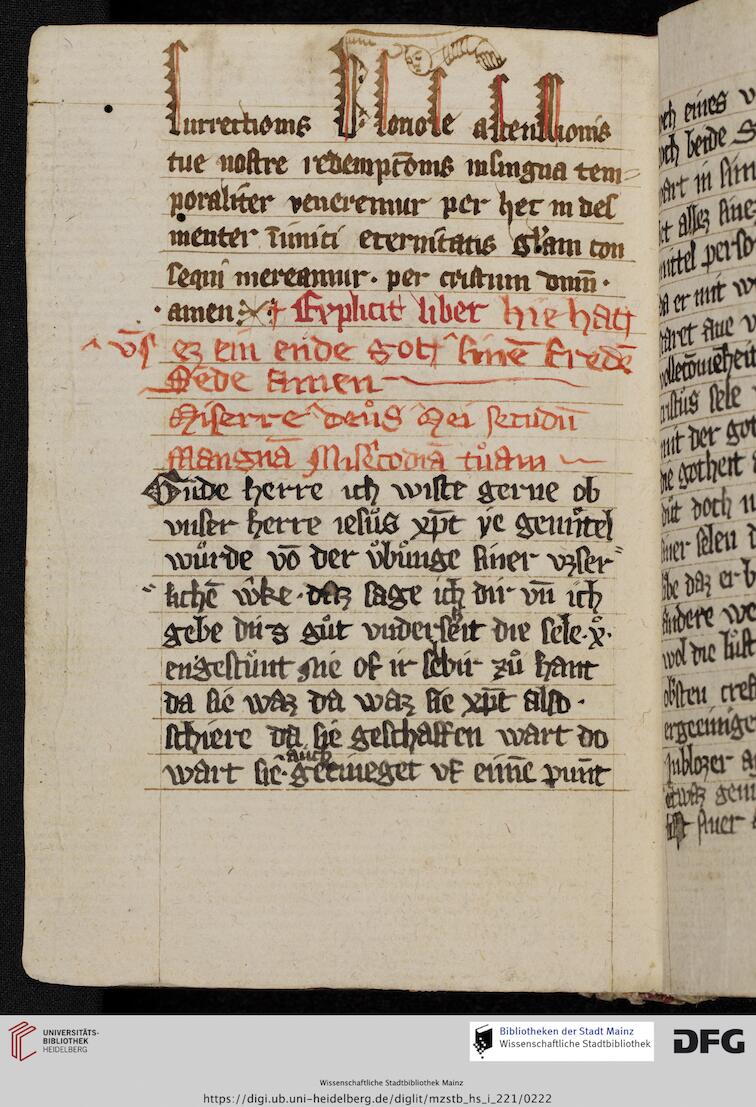 surrectionis & gloriose assenssionis
tue nostre redempcōnis insingna tem=
poraliter veneremur per hec in del
menter eternitatis gl'am con
sequi mereamur. per cristum dominū.
amen Explicit liber hie hatt
vn̄s ez ein ende gott sinen frede
Sēde Amen
Miserre deus Mei secūdū
Mangnā Misericodiā tůam
Gůde herre ich wiste gerne ob
vnser herre iesůs xp̄t ye gemītel
wůrde vō der ůbůnge siner vzser=
lichē w̄ke. daz sage ich dir vn̄ ich
gebe dirs gůt vnderscheit die sele. x̄.
engestůnt nie of ir selbir zů hant
da sie waz da waz sie xp̄t also.
schiere da sie geschaffen wart do
wart sie auch geeineget vf eīme pūnt
och eines v
och beide S
wart in sin
mittel perso
da er mit w
vollecōmēheit
cristus sele
mit der got
die gotheit
důt doch n
siner selen d
habe daz er b
andere we
wol die lůst
obsten cref
ergeeinige
UNIVERSITÄTS-
BIBLIOTHEK
HEIDELBERG
Bibliotheken der Stadt Mainz
Wissenschaftliche Stadtbibliothek
DFG
Wissenschaftliche Stadtbibliothek Mainz
https://digi.ub.uni-heidelberg.de/diglit/mzstb_hs_i_221/0222